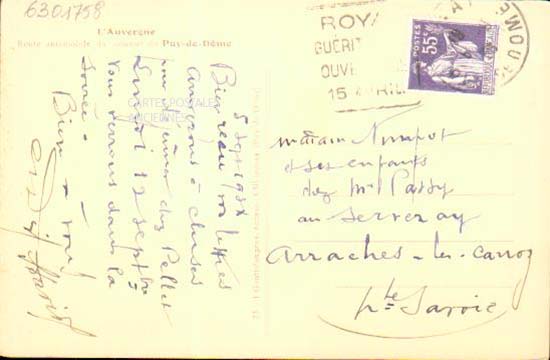 6301758
L'Auvergne
Route automobile du sommet du Puy-de-Dôme
CARTES POSTALES
ANCIENNES
5 Sept 1938
Bien reçu vos lettres
Arriverons à Cluses
pour déjeuner chez Pellet
Lundi 12 septbre
Vous verrons dans la
soirée.
Bien à vous
ROYA
GUÉRIT
OUVE
15 AVRIL
POSTES
55c
Madame
et ses enfants
chez Mr Passy
au Serveray
Arraches-les-Carroz
Hte Savoie